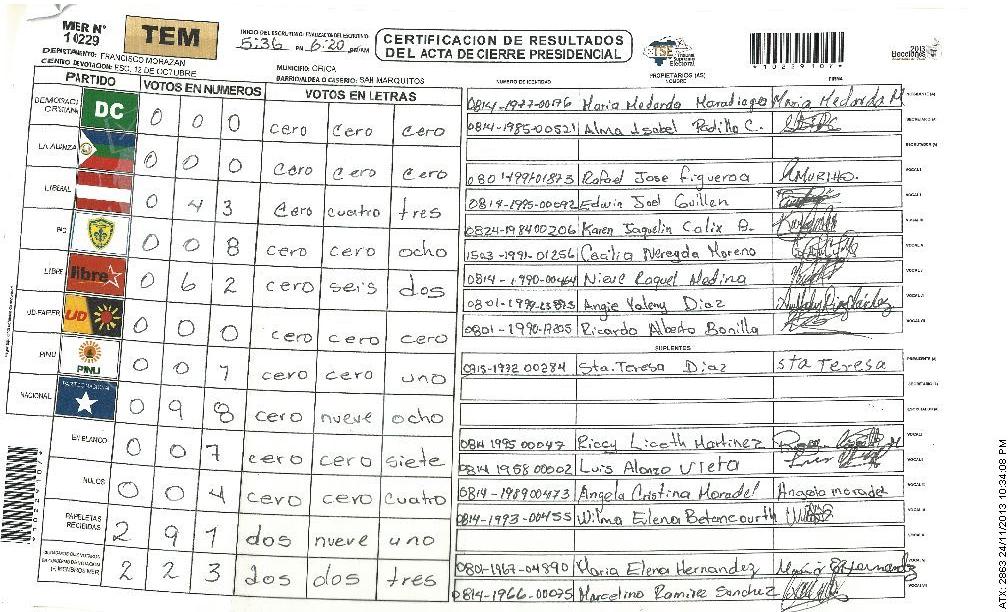 MER Nº 10229
TEM
INICIO DEL ESCRUTINIO
5:36 PM 6:20 PM
CERTIFICACION DE RESULTADOS
DEL ACTA DE CIERRE PRESIDENCIAL
TSE Tribunal Supremo Electoral
2013 Elecciones
*10239107*
DEPARTAMENTO: FRANCISCO MORAZAN
CENTRO DE VOTACION: ESC. 12 DE OCTUBRE
MUNICIPIO: ORICA
BARRIO/ALDEA O CASERIO: SAN MARQUITOS
PARTIDO VOTOS EN NUMEROS VOTOS EN LETRAS
NUMERO DE IDENTIDAD PROPIETARIOS (AS) NOMBRE FIRMA
DEMOCRACIA CRISTIANA DC 0 0 0 cero cero cero
LA ALIANZA 0 0 0 cero cero cero
LIBERAL 0 4 3 cero cuatro tres
0 0 8 cero cero ocho
LIBRE libre 0 6 2 cero seis dos
UD-FAPER UD 0 0 0 cero cero cero
PINU PINU 0 0 1 cero cero uno
NACIONAL PARTIDO NACIONAL 0 9 8 cero nueve ocho
EN BLANCO 0 0 7 cero cero siete
NULOS 0 0 4 cero cero cuatro
PAPELETAS RECIBIDAS 2 9 1 dos nueve uno
2 2 3 dos dos tres
0814-1977-00176 Maria Medarda Maradiaga Maria Medarda M
0814-1985-00521 Alma Isabel Padilla C.
Rafael Jose Figueroa
0814-1995-00092 Edwin Joel Guillen
0824-198400206 Karen Jaquelin Calix B.
1503-1991-01256 Cecilia Nereyda Moreno
0814-1990-00464 Nieve Raquel Medina
Angie Yaleny Diaz
Ricardo Alberto Bonilla
SUPLENTES
0915-1972 00284 Sta. Teresa Diaz Sta Teresa
0814 1995 00047 Riccy Liceth Martinez
0814 1958 00002 Luis Alonzo
0814-1989 00473 Angela Cristina Moradel Angela moradel
0814-1993-00455 Wilma Elena Betancourth
0801-1967-04890 Maria Elena Hernandez
0814-1966-00075 Marcelino Ramirez Sanchez
24/11/2013 10:34:08 PM